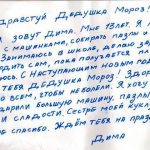 дравствуй Дедушка Мороз!
зовут Дима. Мне 13 лет. Я л
с машинками, собирать пазлы и
Занимаюсь в школе, делаю зар
с папой.
С Наступающим новым год
Дедушка Мороз! Здор
всем, чтобы не болели. Я хочу
дарили большую машину, пазлы
и сладости. Сестре моей куклу
спасибо. Ждём тебя на праз
Дима